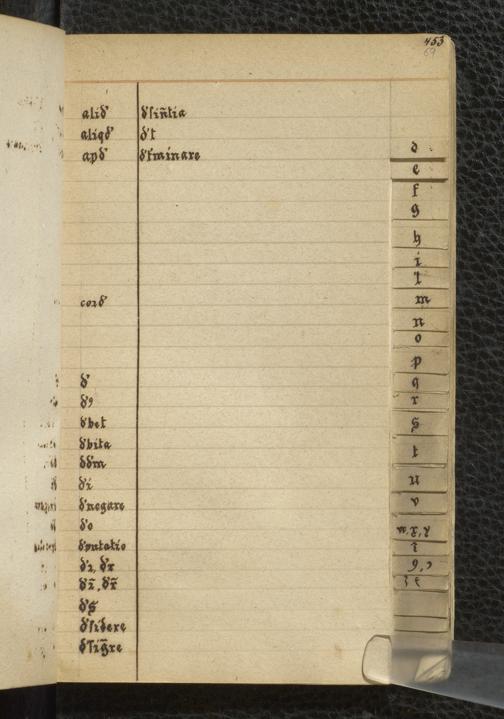 453
69
alid' d'sint̄ia
aliqd' d't
apd' d'tminare
cord'
d'
d'9
d'bet
d'bita
dd̄m
d'i
d'negare
d'o
d'ontatio
d'2, d'r
d'2̄, d'r̄
d's̄
d'sidere
d'sig̅re
d
e
f
g
h
i
l
m
n
o
p
q
r
s
t
u
v